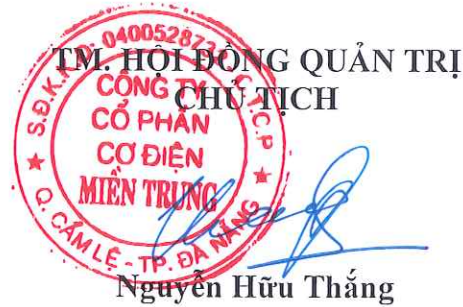 TM. HỘI ĐỒNG QUẢN TRỊ
CHỦ TỊCH
CÔNG TY
CỔ PHẦN
CƠ ĐIỆN
MIỀN TRUNG
Q. CẨM LỆ - TP. ĐÀ NẴNG
Nguyễn Hữu Thắng